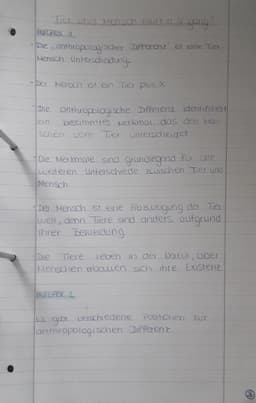 Tier und Mensch
AUFGABE 1
- Die "anthropologischer Differenz" ist eine Tier
Mensch Unterscheidung.
- Der Mensch ist ein Tier plus X
- Die anthropologische Differenz identifiziert
ein bestimmtes Merkmal, das den Men-
schen vom Tier unterscheidet
- Die Merkmale sind grundlegend für alle
weiteren Unterschiede zwischen Tier und
Mensch
- Der Mensch ist eine der Tier
welt, denn Tiere sind anders aufgrund
ihrer
- Die Tiere leben in der Natur, aber
Menschen erbauen sich ihre Existenz
AUFGABE 2
Es gibt verschiedene Positionen zur
anthropologischen Differenz